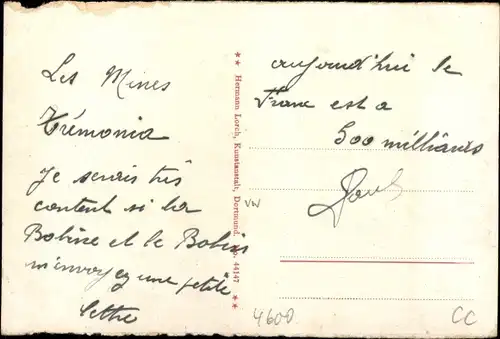 Les Mines
Trémonia
Je serais très
content si la
Bobine et le Bobin
m'envoyez une petite
lettre
Hermann Lorch, Kunstanstalt, Dortmund. 44147
aujourd'hui le
Franc est a
500 milliards
Paul
VW
4600
CC